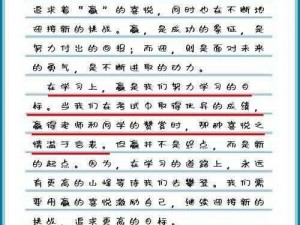 追求着“赢”的喜悦，同时也在不断地
迎接新的挑战。赢，是成功的象征，是
努力付出的回报；而迎，则是面对未来
的勇气，是不断进取的动力。
在学习上，赢是我们努力学习的目
标。当我们在考试中取得优异的成绩，
赢得老师和同学的赞赏时，那种喜悦之
情溢于言表。但赢并不是终点，而是新
的起点。因为，在学习的道路上，永远
有更高的山峰等待我们去攀登。我们需
要用赢的喜悦激励自己，继续迎接新的
挑战，追求更高的目标。